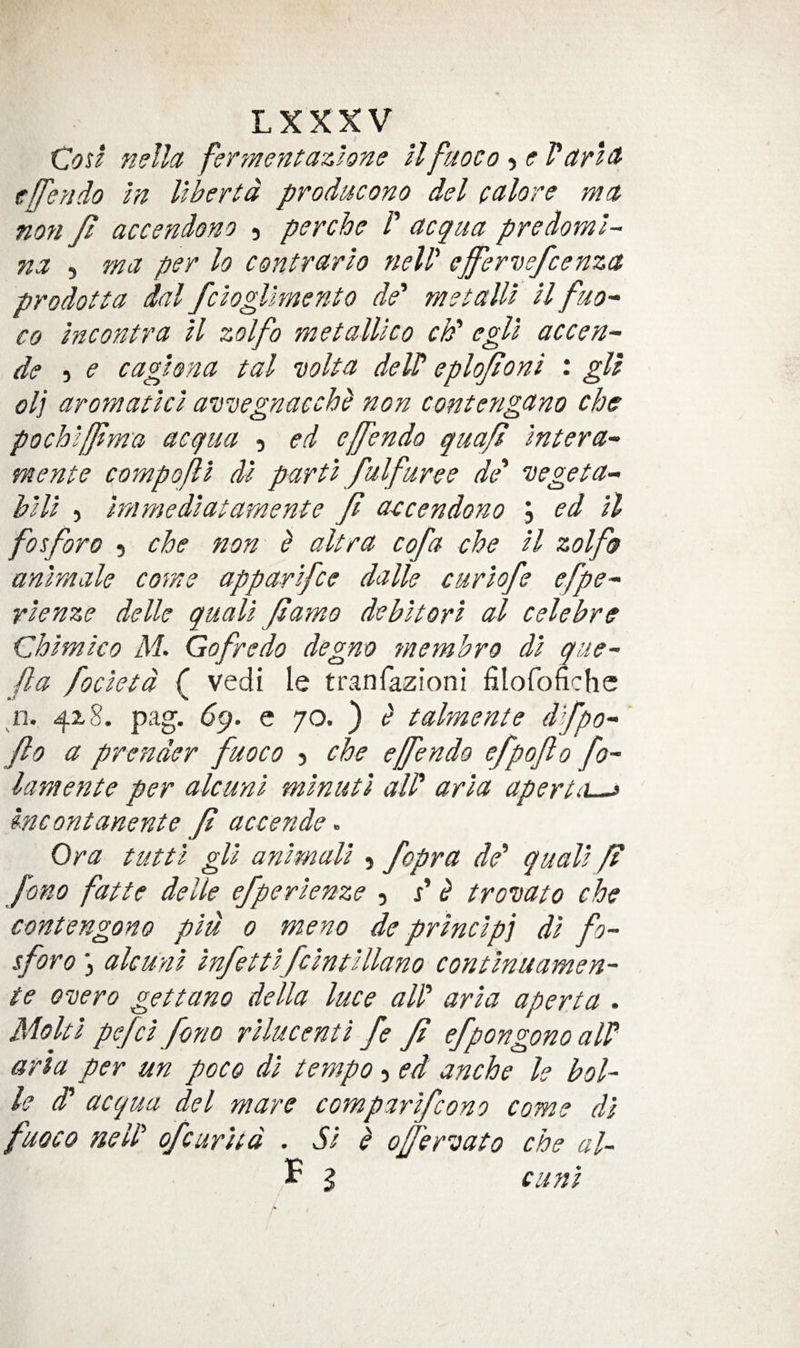 LXXXV
Così nella fermentazione il fuoco, e l' aria
eſſendo in libertà producono del calore ma
non ſi accendono, perche l' acqua predomi-
na, ma per lo contrario nell' efferveſcenza
prodotta dal ſcioglimento de' metalli il fuo-
co incontra il zolfo metallico ch' egli accen-
de, e cagiona tal volta dell' eploſioni : gli
olj aromatici avvegnacchè non contengano che
pochiſſima acqua, ed eſſendo quaſi intera-
mente compoſti di parti ſulfuree de' vegeta-
bili, immediatamente ſi accendono; ed il
fosforo, che non è altra coſa che il zolfo
animale come appariſce dalle curioſe eſpe-
rienze delle quali ſiamo debitori al celebre
Chimico M. Gofredo degno membro di que-
ſta ſocietà ( vedi le tranſazioni filoſofiche
n. 428. pag. 69. e 70. ) è talmente diſpo-
ſto a prender fuoco, che eſſendo eſpoſto ſo-
lamente per alcuni minuti all' aria aperta
incontanente ſi accende.
Ora tutti gli animali, ſopra de' quali ſi
ſono fatte delle eſperienze, s' è trovato che
contengono più o meno de principj di fo-
sforo; alcuni inſetti ſcintillano continuamen-
te overo gettano della luce all' aria aperta.
Molti peſci ſono rilucenti ſe ſi eſpongono all'
aria per un poco di tempo, ed anche le bol-
le d' acqua del mare compariſcono come di
fuoco nell' oſcurità. Si è oſſervato che al-
F 3 cuni